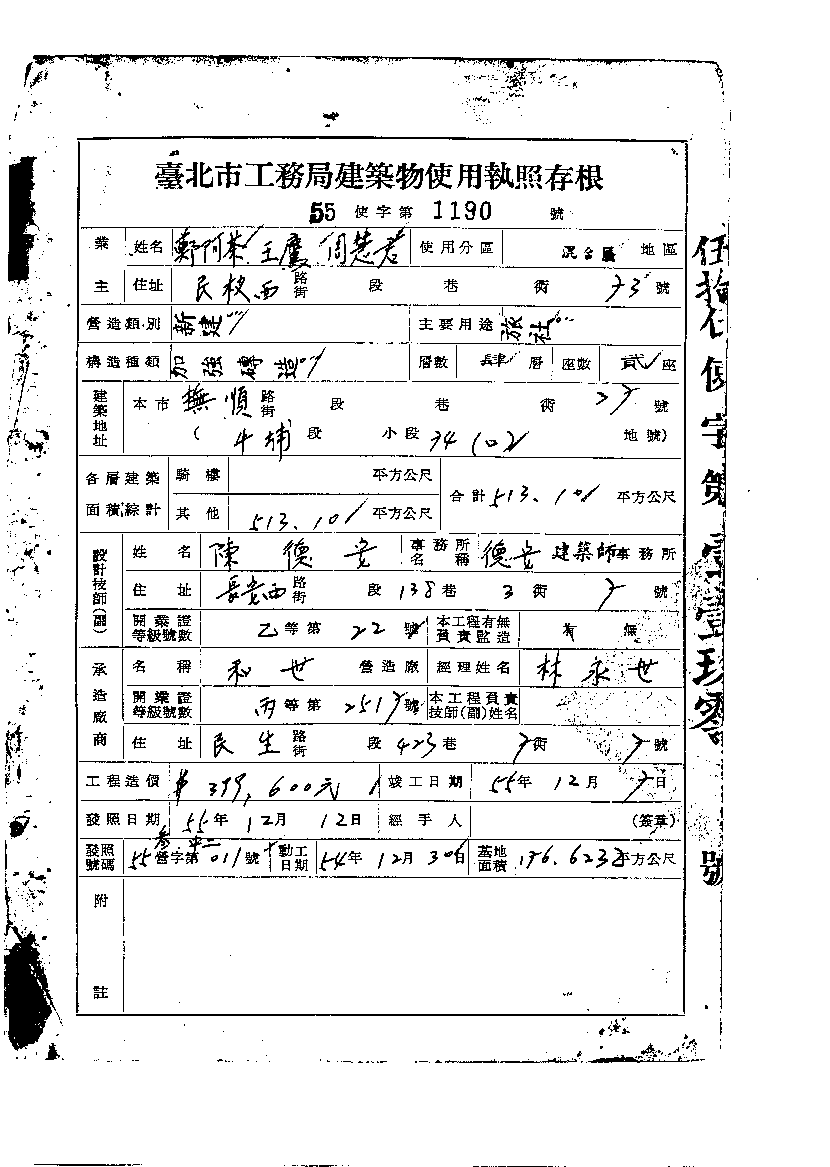 臺北市工務局建築物使用執照存根
55 使字第 1190 號
業主 姓名 鄭阿 王鷹 周楚君 使用分區 混合區 地區
住址 民 西 路街 段 巷 街 73 號
營造類別 新建 主要用途 旅社
構造種類 加強磚造 層數 肆 層 座數 貳 座
建築地址 本市 撫順 路街 段 巷 街 27 號
( 牛埔 段 小段 34 102 地號)
各層建築面積綜計 騎樓 平方公尺 合計 513.10 平方公尺
其他 513.10 平方公尺
設計技師(副) 姓名 陳德 事務所名稱 德 建築師事務所
住址 長安西 路街 段 138 巷 3 街 7 號
開業證等級號數 乙等第 22 號 本工程有無負責監造 有 無
承造廠商 名稱 和世 營造廠 經理姓名 林永世
開業證等級號數 丙等第 2517 號 本工程負責技師(副)姓名
住址 民生 路街 段 423 巷 7 街 7 號
工程造價 $ 399,600元 竣工日期 55年 12月 7日
發照日期 55年 12月 12日 經手人 (簽章)
發照號碼 55 營字第 011 號 動工日期 54年 12月 30日 基地面積 196.623 平方公尺
附註
伍拾伍使字第壹壹玖零號